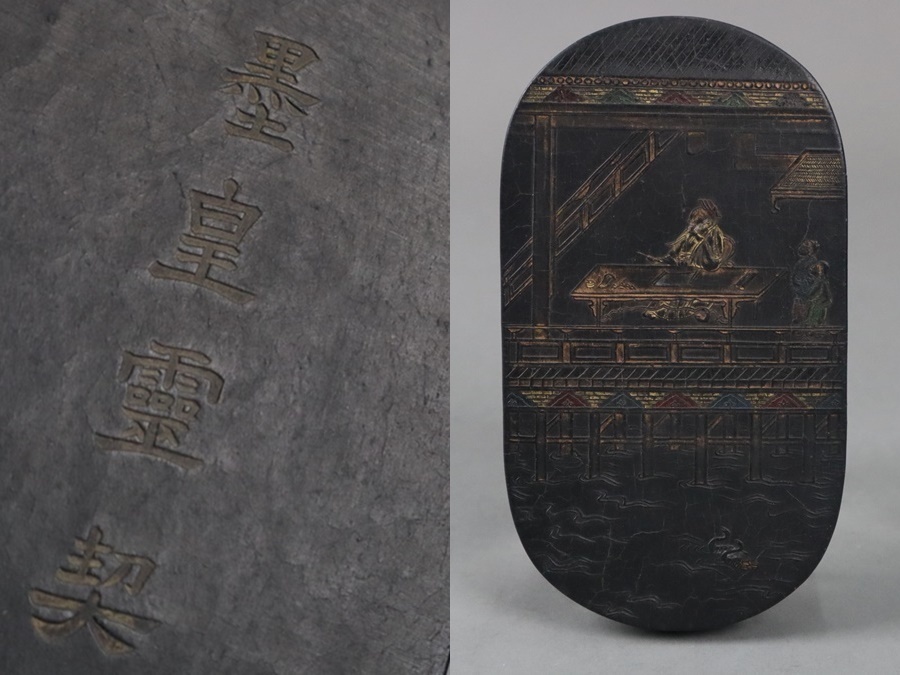 墨皇靈契